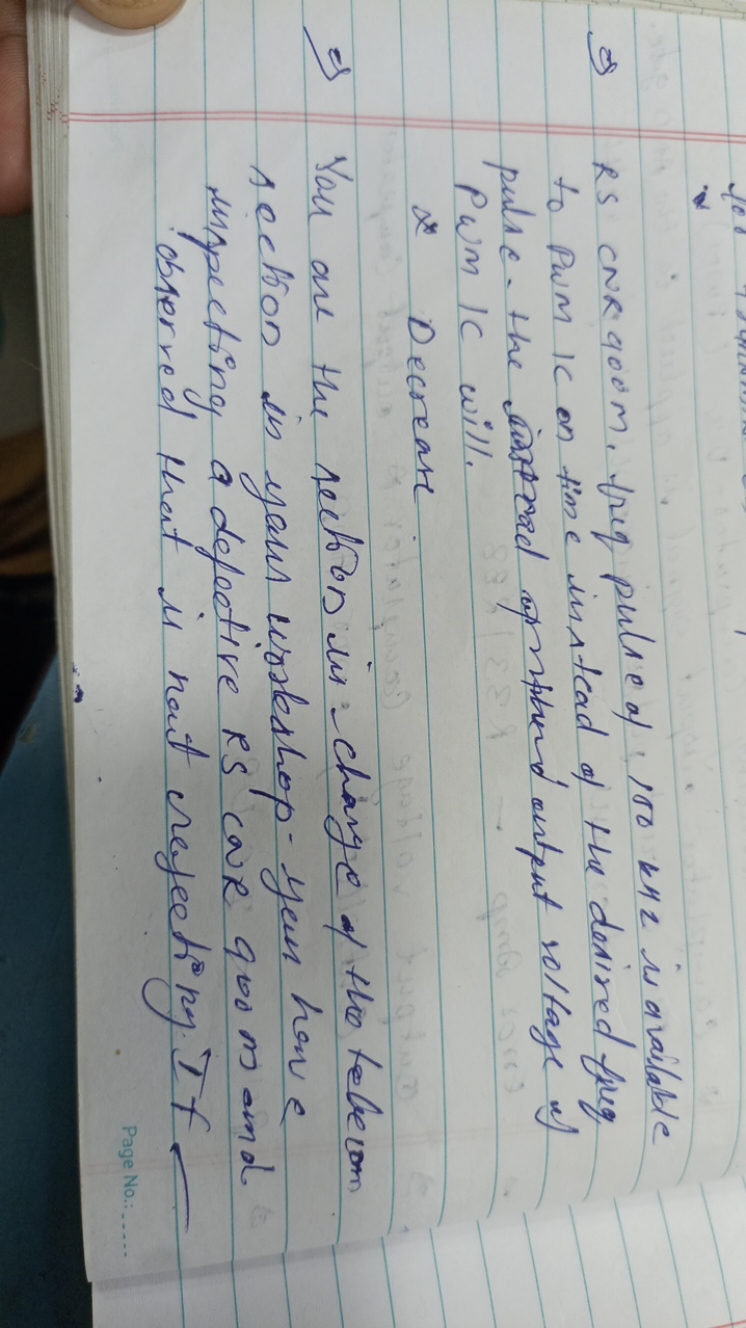 Q RS CNR 900m, freq pulse of 100 kHz is available
to PWM IC on time instead of the desired freq
pulse. the output voltage of
PWM IC will.
2 Decrease
Q You are the section in-charge of the telecom
section in your workshop. you have
inspecting a defective RS CNR 900 m and
observed that is not rejecting. If
Page No.: